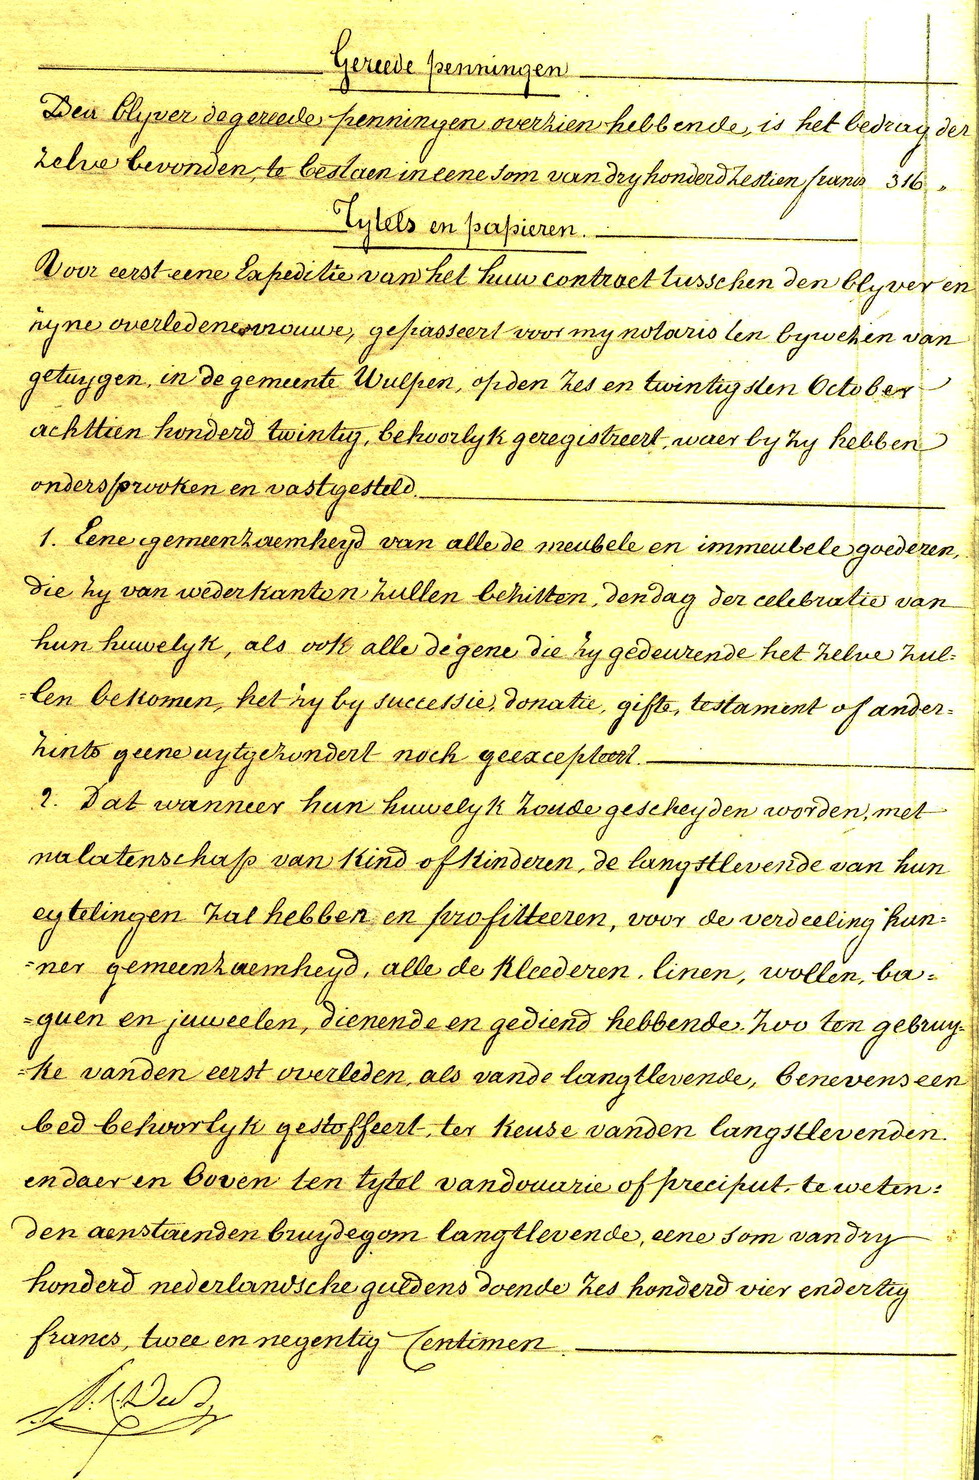 Gereede penningen
Den blyver de gereede penningen overzien hebbende, is het bedrag der
zelve bevonden, te bestaen in eene som van dry honderd zestien francs 316 "
Tytels en papieren.
Voor eerst eene Expeditie van het huw contract tusschen den blyver en
zyne overledene vrouwe, gepasseert voor my notaris ten bywezen van
getuygen, in de gemeente Wulpen, op den zes en twintigsten October
achttien honderd twintig, behoorlyk geregistreert, waer by zy hebben
ondersprooken en vastgesteld.
1. Eene gemeenzaemheyd van alle de meubele en immeubele goederen,
die zy van wederkanten zullen bezitten, den dag der celebratie van
hun huwelyk, als ook alle de gene die zy gedeurende het zelve zul=
=len bekomen, het zy by successie, donatie, gifte, testament of ander=
zints geene uytgezondert noch geexcepteert.
2. Dat wanneer hun huwelyk zoude gescheyden worden, met
nalatenschap van Kind of Kinderen, de langstlevende van hun
eytelingen zal hebben en profitteeren, voor de verdeeling hun=
=ner gemeenzaemheyd, alle de Kleederen, linen, wollen, ba=
=guen en juweelen, dienende en gediend hebbende, zoo ten gebruy=
=ke vanden eerst overleden, als vande langtlevende, benevens een
bed behoorlyk gestoffeert, ter keuse vanden langstlevenden.
en daer en boven ten tytel van douarie of preciput, te weten:
den aenstaenden bruydegom langtlevende, eene som van dry
honderd nederlandsche guldens doende zes honderd vier en dertig
francs, twee en negentig Centimen.